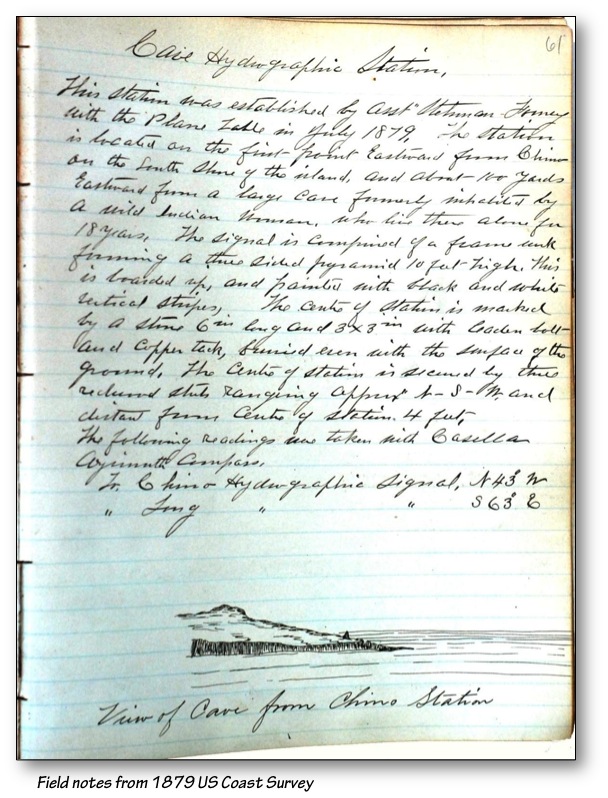 61
Cave Hydrographic Station,
This station was established by Asst Stehman Forney
with the Plane Table in July 1879 The station
is located on the first point Eastward from Chino
on the South Shore of the island, and about 100 yards
Eastward from a large cave formerly inhabited by
a wild Indian Woman, who live there alone for
18 years, The signal is comprised of a frame work
forming a three sided pyramid 10 feet high. This
is boarded up, and painted with black and white
vertical stripes, The centre of station is marked
by a stone 6 in long and 3x3 in with leaden bolt
and copper tack, buried even with the surface of the
ground. The Centre of station is secured by three
redwood stubs ranging approx N-S-W. and
distant from Centre of station 4 feet,
The following readings were taken with Casella
Azimuth Compass,
To Chino Hydrographic Signal, N 43° W
" Jug " " S 63° E
View of Cave from Chino Station
Field notes from 1879 US Coast Survey